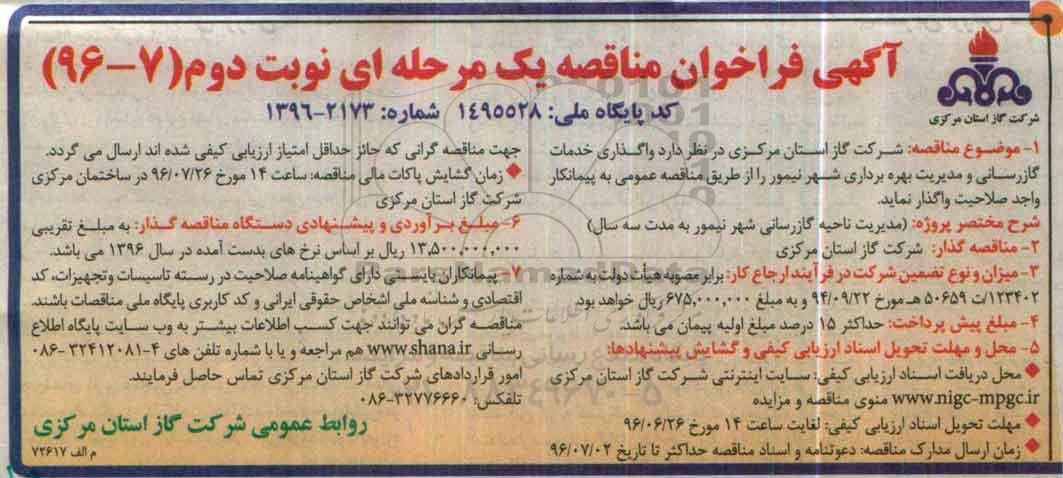 آگهی فراخوان مناقصه یک مرحله ای نوبت دوم(۷-۹۶)
کد پایگاه ملی: ۱۴۹۵۵۲۸ شماره: ۲۱۷۳-۱۳۹۶
شرکت گاز استان مرکزی
۱- موضوع مناقصه: شرکت گاز استان مرکزی در نظر دارد واگذاری خدمات
گازرسانی و مدیریت بهره برداری شهر نیمور را از طریق مناقصه عمومی به پیمانکار
واجد صلاحیت واگذار نماید.
شرح مختصر پروژه: (مدیریت ناحیه گازرسانی شهر نیمور به مدت سه سال)
۲- مناقصه گذار: شرکت گاز استان مرکزی
۳- میزان و نوع تضمین شرکت در فرآیند ارجاع کار: برابر مصوبه هیأت دولت به شماره
۱۲۳۴۰۲/ت ۵۰۶۵۹ هـ مورخ ۹۴/۰۹/۲۲ و به مبلغ ۶۷۵,۰۰۰,۰۰۰ ریال خواهد بود.
۴- مبلغ پیش پرداخت: حداکثر ۱۵ درصد مبلغ اولیه پیمان می باشد.
۵- محل و مهلت تحویل اسناد ارزیابی کیفی و گشایش پیشنهادها:
♦ محل دریافت اسناد ارزیابی کیفی: سایت اینترنتی شرکت گاز استان مرکزی
www.nigc-mpgc.ir منوی مناقصه و مزایده
♦ مهلت تحویل اسناد ارزیابی کیفی: لغایت ساعت ۱۴ مورخ ۹۶/۰۶/۲۶
♦ زمان ارسال مدارک مناقصه: دعوتنامه و اسناد مناقصه حداکثر تا تاریخ ۹۶/۰۷/۰۲
جهت مناقصه گرانی که حائز حداقل امتیاز ارزیابی کیفی شده اند ارسال می گردد.
♦ زمان گشایش پاکات مالی مناقصه: ساعت ۱۴ مورخ ۹۶/۰۷/۲۶ در ساختمان مرکزی
شرکت گاز استان مرکزی
۶- مبلغ برآوردی و پیشنهادی دستگاه مناقصه گذار: به مبلغ تقریبی
۱۳,۵۰۰,۰۰۰,۰۰۰ ریال بر اساس نرخ های بدست آمده در سال ۱۳۹۶ می باشد.
۷- پیمانکاران بایستی دارای گواهینامه صلاحیت در رسته تاسیسات وتجهیزات، کد
اقتصادی و شناسه ملی اشخاص حقوقی ایرانی و کد کاربری پایگاه ملی مناقصات باشند.
مناقصه گران می توانند جهت کسب اطلاعات بیشتر به وب سایت پایگاه اطلاع
رسانی www.shana.ir هم مراجعه و یا با شماره تلفن های ۴-۳۲۴۱۲۰۸۱-۰۸۶
امور قراردادهای شرکت گاز استان مرکزی تماس حاصل فرمایند.
تلفکس: ۳۲۷۷۶۶۶۰-۰۸۶
روابط عمومی شرکت گاز استان مرکزی
م الف ۷۲۶۱۷